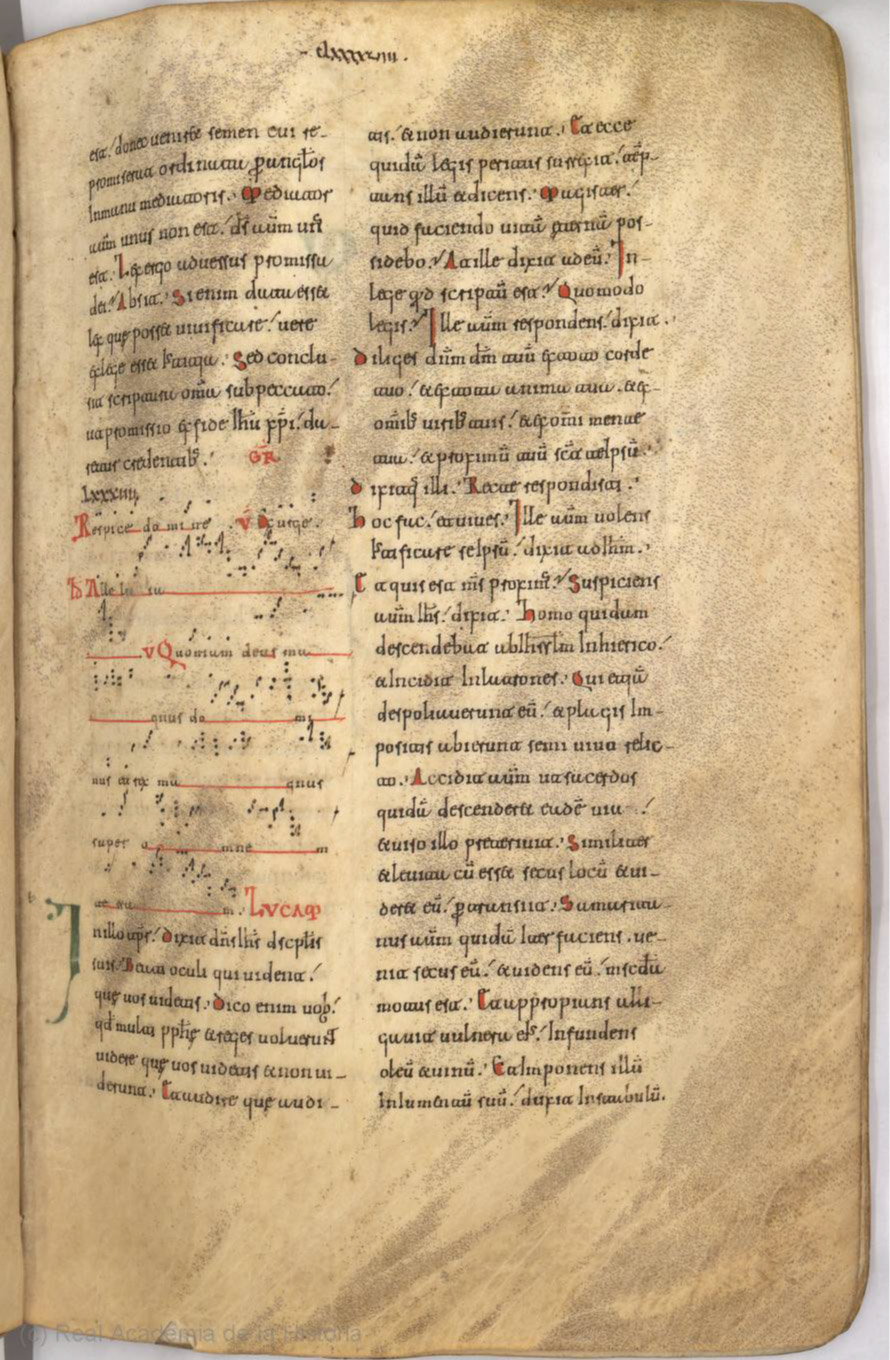 clxxxxviii.
est. donec veniret semen cui re-
promiserat ordinatu ꝑ angłos
Inmanu mediatoris. Mediator
autē unus non est. ds̄ autē unꝰ
est. Lex ergo adversus promissa
dei. Absit. Si enim data esset
lex quę posset vivificare. vere
ex lege esset Iusticia. Sed conclu-
sit scriptura om̄ia sub peccato.
ut a promissio ex fide ihū xp̄i. da-
retur credentibꝰ. GR
lxxxiiii
Respice domine. V Exurge.
Alleluia
V Quoniam deus ma
gnus do mi
nus et rex ma gnus
super o mne m
ter ra m. LVCAM
In illo tp̄r. Dixit dn̄s ihs̄ discipl̄is
suis. Beati oculi qui vident.
quę vos videtis. Dico enim vob̄.
qd̄ multi pphę et reges voluerunt
videre quę vos videtis et non vi-
derunt. Et audire quę audi-
tis. et non audierunt. Et ecce
quidā legis peritus surrexit. tēp-
tans illū et dicens. Magister.
quid faciendo vitā ęternā pos-
sidebo. At ille dixit ad eū. In
lege qd̄ scriptū est. Quomodo
legis. Ille autē respondens. dixit.
Diliges dn̄m dm̄ tuū ex toto corde
tuo. et ex tota anima tua. et ex
om̄ibꝰ viribꝰ tuis. et ex om̄i mente
tua. et proximū tuū sic̄ te ipsū.
Dixitq; illi. Recte respondisti.
Hoc fac. et vives. Ille autē volens
Iustificare se ipsū. dixit ad ihm̄.
Et quis est ms̄ proximꝰ. Suspiciens
autē ihs̄. dixit. Homo quidam
descendebat ab ihrslm̄ In hierico.
et Incidit In latrones. Qui etiā
despoliaverunt eū. et plagis Im-
positis abierunt semi vivo relic-
to. Accidit autē ut sacerdos
quidā descenderet eadē via.
et viso illo preterivit. Similiter
et levita cū esset secus locū et vi-
deret eū. ꝑtransiit. Samarita-
nus autē quidā iter faciens. ve-
nit secus eū. et videns eū. mis̄cdia
motus est. Et appropians alli-
gavit vulnera eiꝰ. Infundens
oleū et vinū. Et Imponens illū
In Iumentū suū. duxit In stabulū.
(c) Real Academia de la Historia